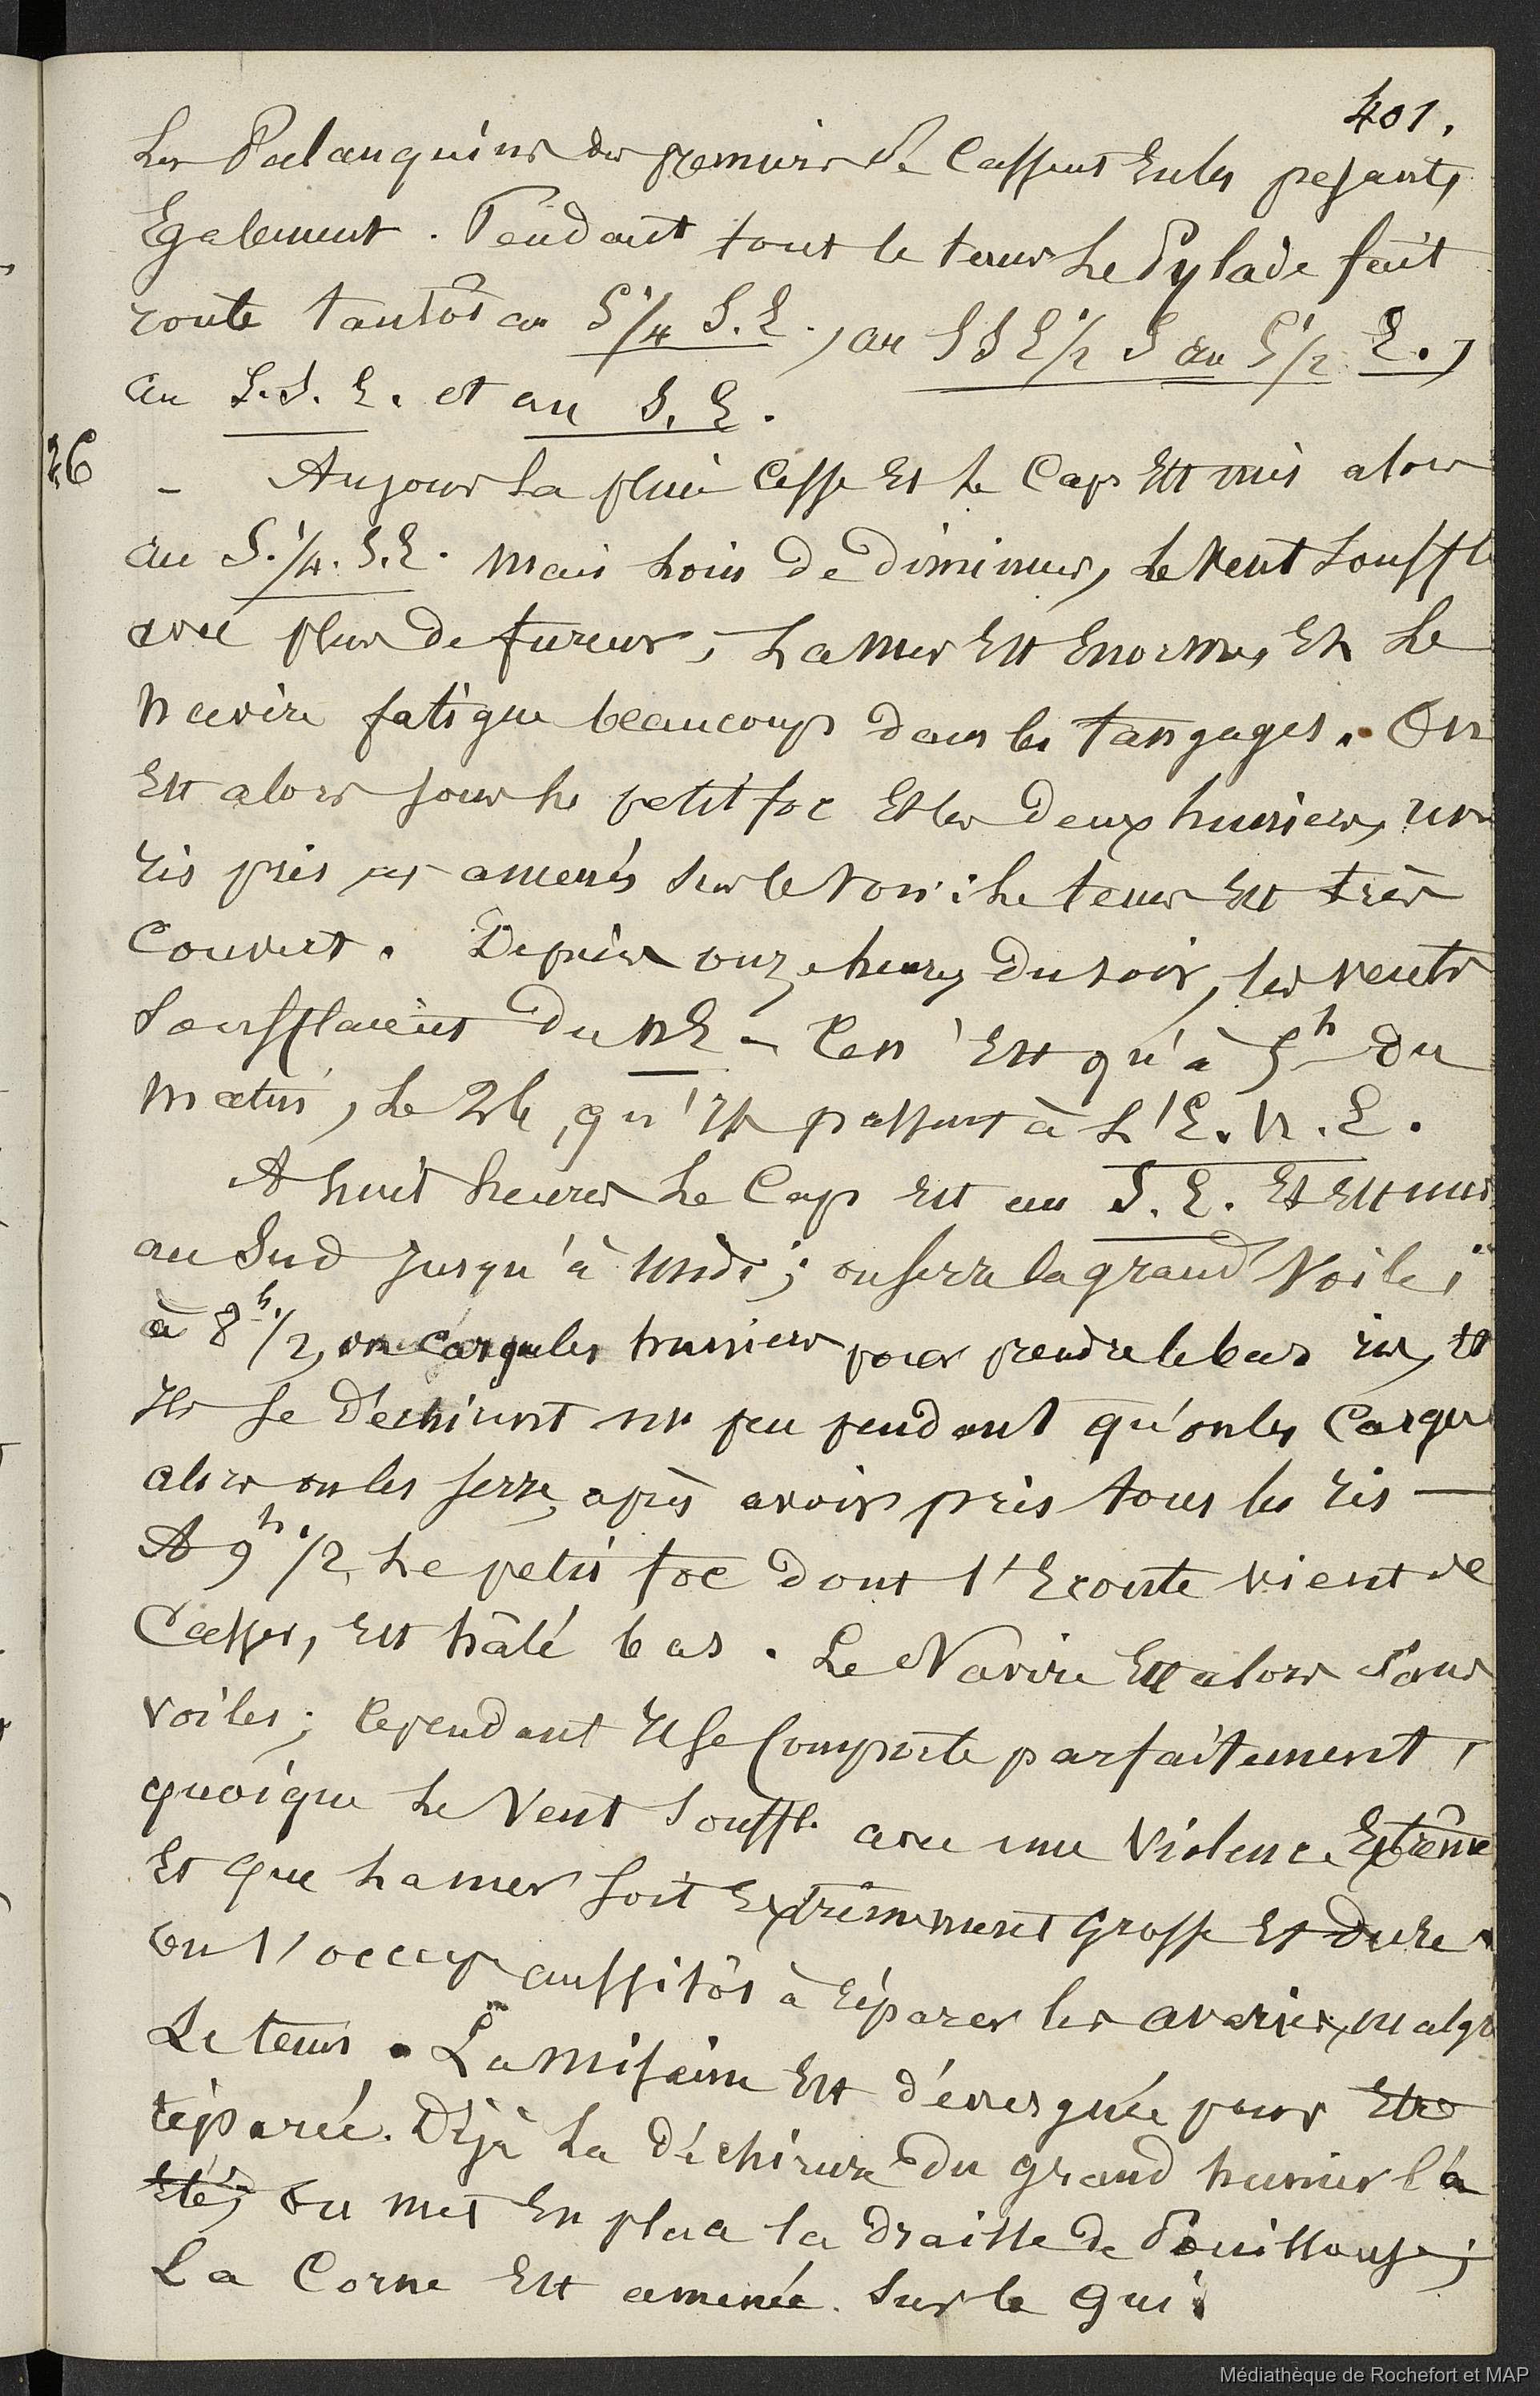 401.
Les Palanquins des premiers se Cassent En les pesants
Egalement. Pendant tout le tems Le Pylade fait
route tantôt au S 1/4 S.E., au S S E 1/2 S au S 1/2 E.,
au S.S.E. et au S.E.
26 - Au jour La pluie Cesse Et le Cap Est mis alors
au S. 1/4. S.E. Mais Loin de Diminuer, Le Vent Souffle
avec plus de fureur, La Mer Est Enorme, Et Le
Navire fatigue beaucoup dans les Tangages. On
Est alors sous le petit foc Et les Deux huniers, un
Ris pris et amenés Sur le Ton; Le tems Est très
Couvert. Depuis onze heures Du soir, les vents
Soufflaient Du NE - Ce n'Est qu'à 5h Du
Matin, Le 26, qu'ils passent à L'E.N.E.
A huit heures Le Cap Est au S.E. Et Est mis
au Sud Jusqu'à Midi; on serre la grand Voile;
à 8h 1/2, on Cargue les huniers pour prendre le bas ris, et
Ils Se Déchirent un peu pendant qu'on les Cargue
alors on les serre, après avoir pris tous les Ris —
A 9h 1/2, Le petit foc dont l'Ecoute vient de
Casser, Est hâlé bas. Le Navire Est alors Sans
Voiles; Cependant Il Se Comporte parfaitement,
quoique Le Vent Souffle avec une Violence Extrême
Et Que La mer Soit Extrêmement Grosse Et Dure.
on s'occupe aussitôt à Réparer les avaries, malgré
Le tems. La Misaine Est dévergué pour Etre
réparée. Déjà La Déchirure Du grand hunier l'a
Eté, On met En place la Draille de Pouillouse;
La Corne Est amenée Sur le Gui.
Médiathèque de Rochefort et MAP